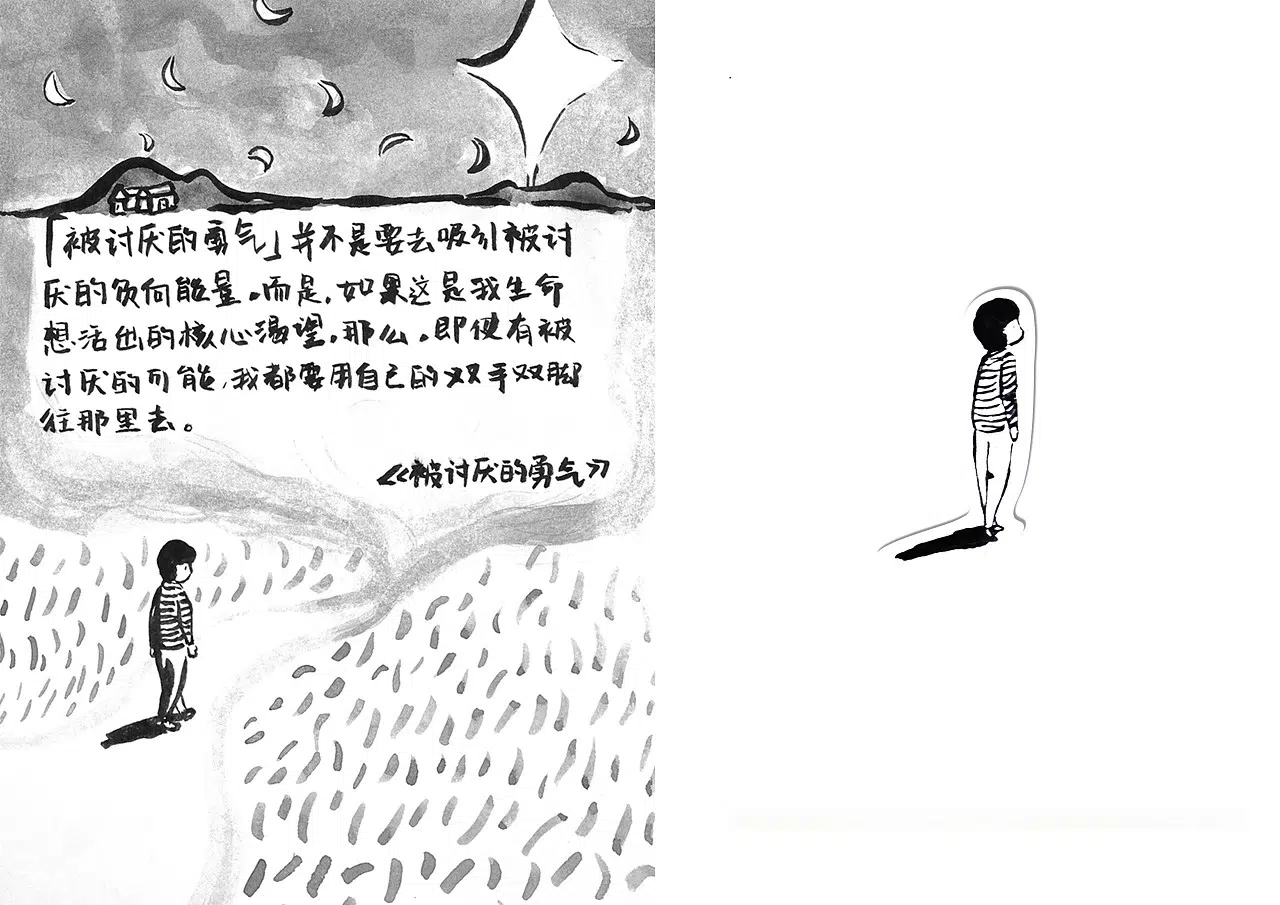 「被讨厌的勇气」并不是要去吸引被讨
厌的负向能量。而是,如果这是我生命
想活出的核心渴望,那么,即使有被
讨厌的可能,我都要用自己的双手双脚
往那里去。
《被讨厌的勇气》